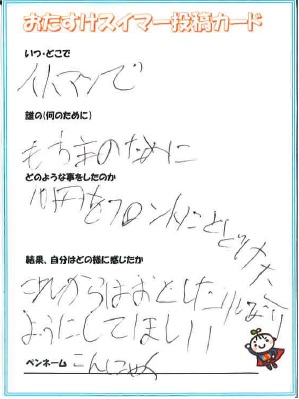 おたすけスイマー投稿カード
いつ・どこで
イトマンで
誰の(何のために)
もちぬしのために
どのような事をしたのか
10円をフロントにとどけた
結果、自分はどの様に感じたか
これからはおとした
ようにしてほしい
ペンネーム こんにゃく